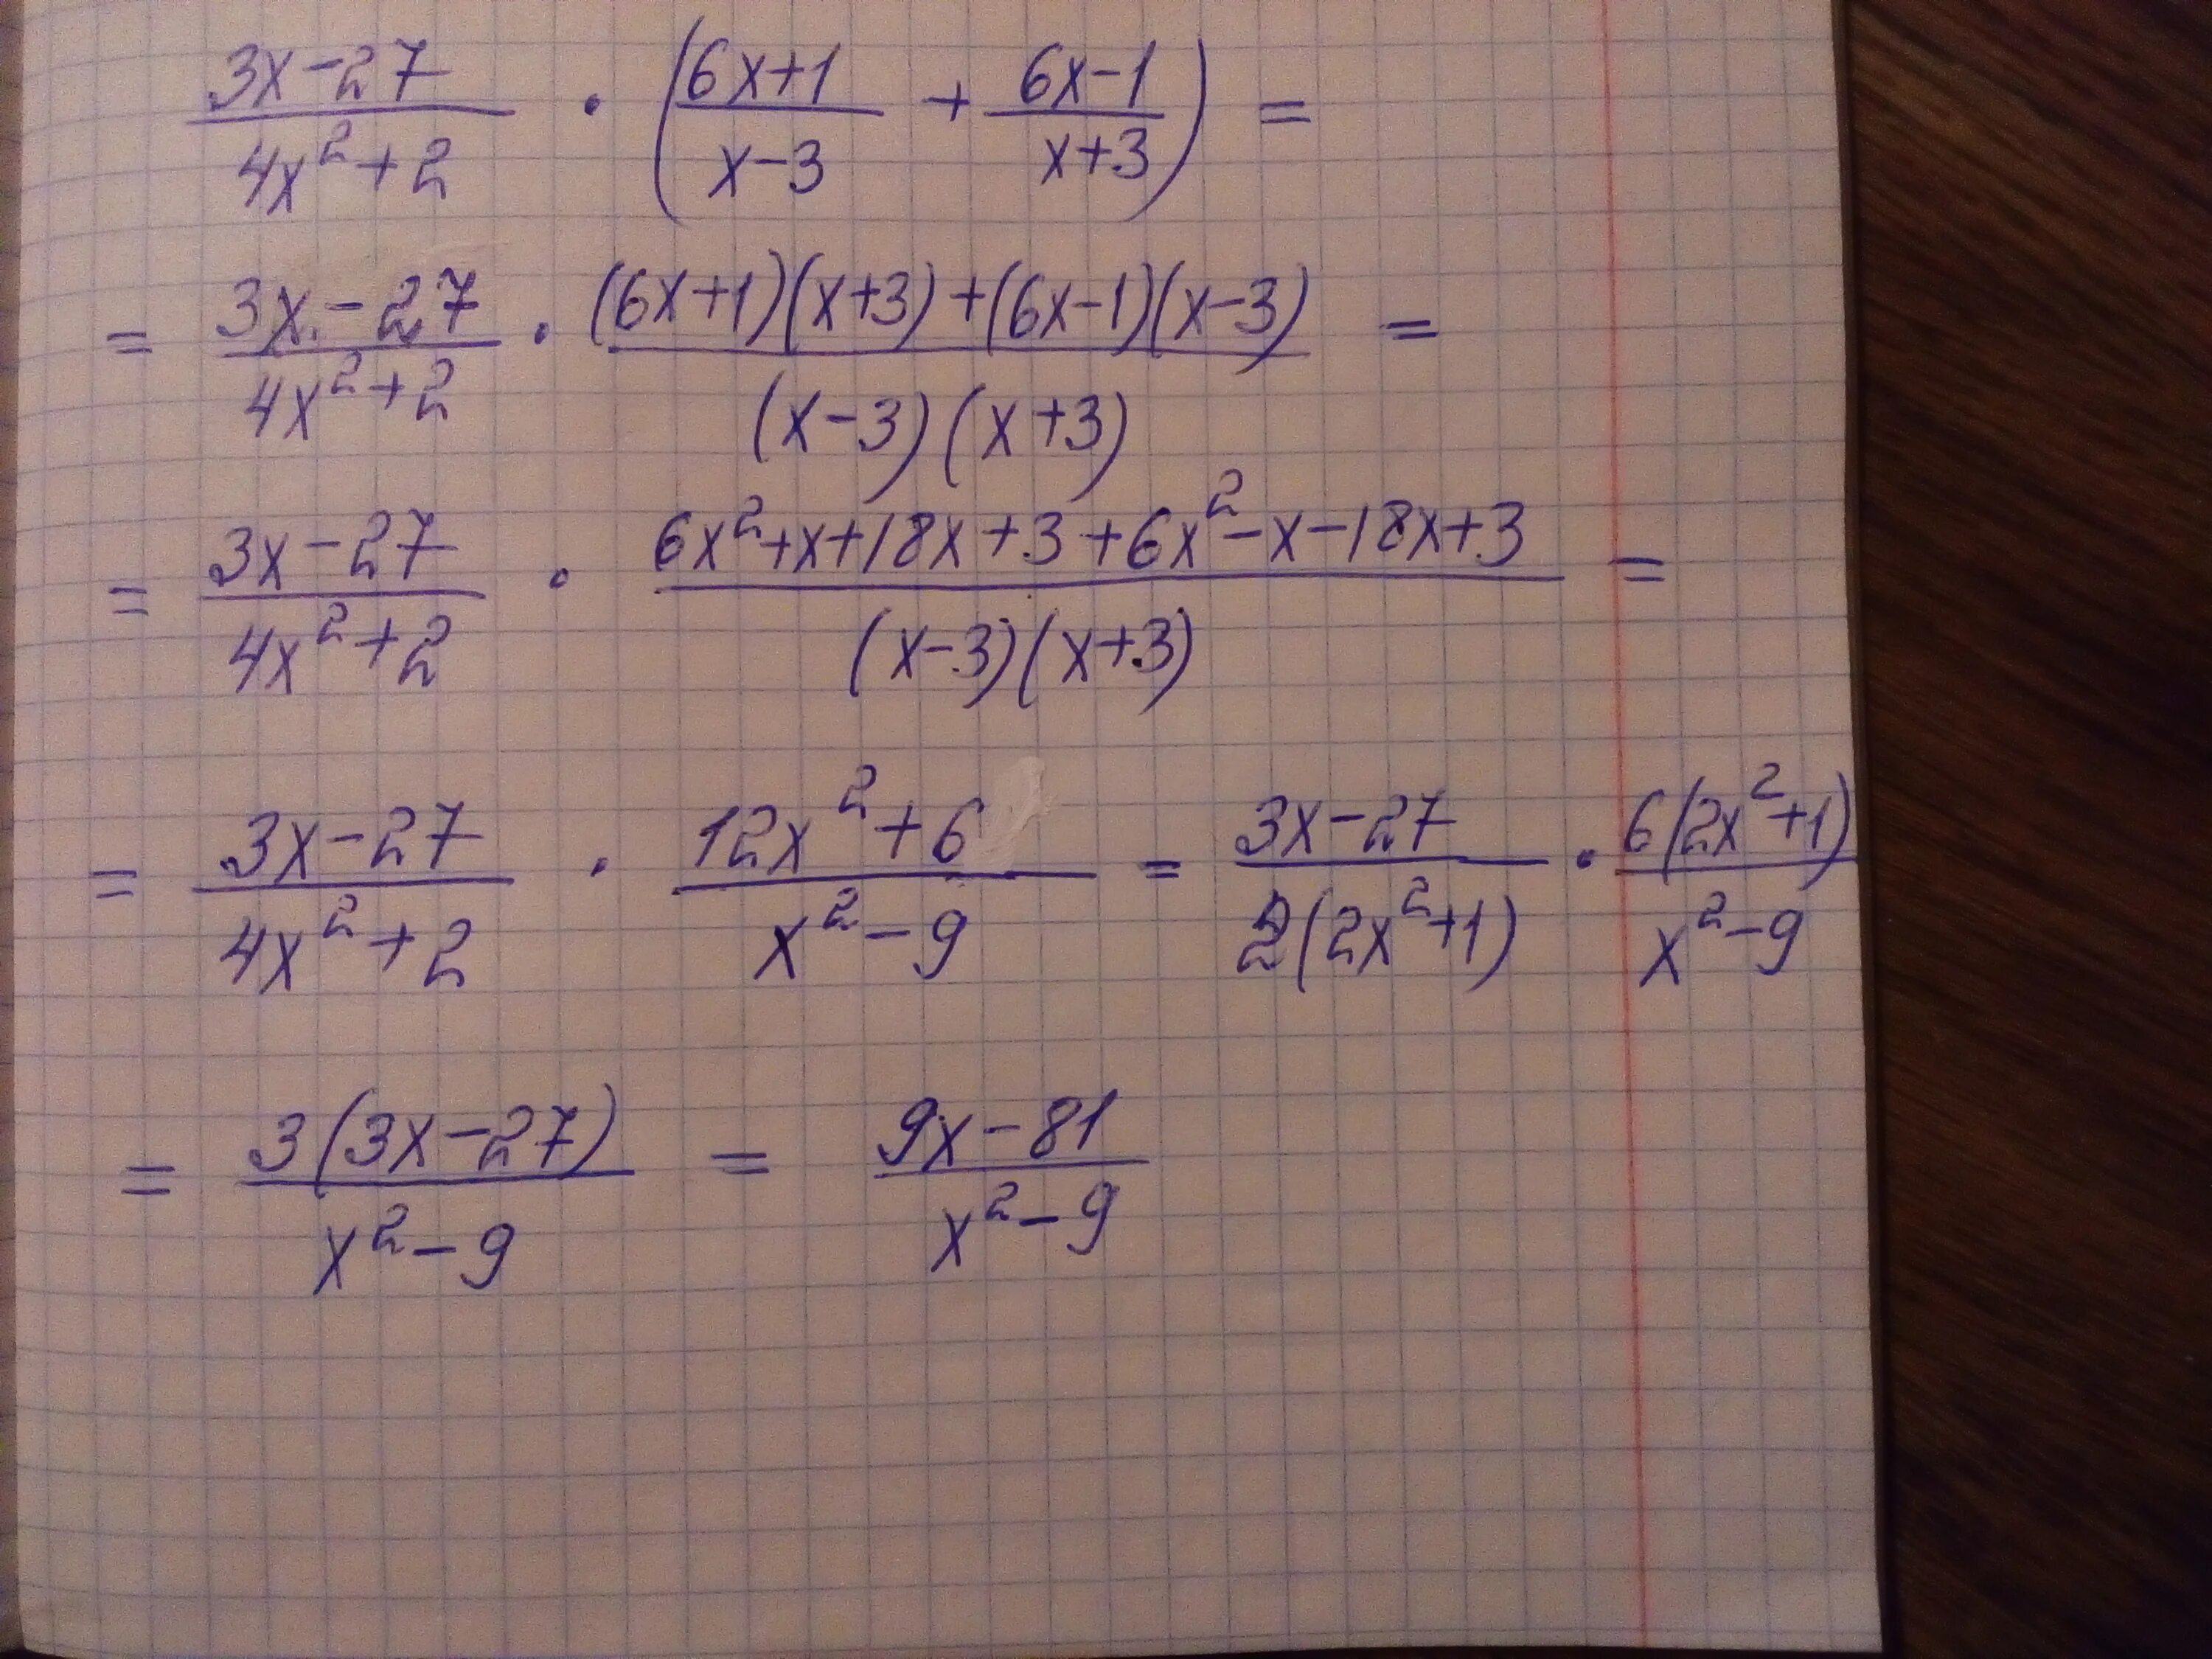 (3x-27)/(4x²+2) · ((6x+1)/(x-3) + (6x-1)/(x+3)) =
= (3x-27)/(4x²+2) · ((6x+1)(x+3)+(6x-1)(x-3))/((x-3)(x+3)) =
= (3x-27)/(4x²+2) · (6x²+x+18x+3+6x²-x-18x+3)/((x-3)(x+3)) =
= (3x-27)/(4x²+2) · (12x²+6)/(x²-9) = (3x-27)/(2(2x²+1)) · (6(2x²+1))/(x²-9)
= (3(3x-27))/(x²-9) = (9x-81)/(x²-9)